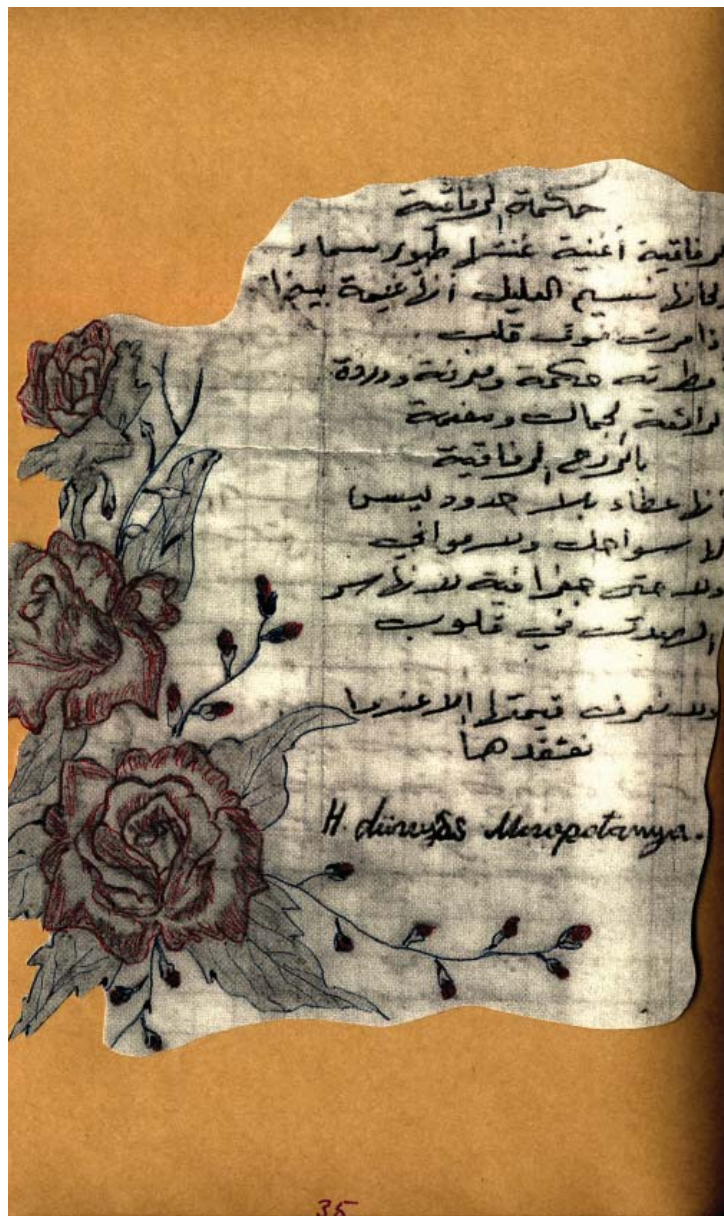 حكمة الرفاقية
لرفاقية أغنية غنتها طيور سماء
لحانها نسيم العليل أنها غيمة بيضا
ذا مرت فوق قلب
مطرته حكمة ومرنة ووردة
لرائعة الجمال ومفعمة
بالروح الرفاقية
نها عطاء بلا حدود ليس
لا سواحل ولا موانئ
ولا حتى جغرافية لانها سر
الصدق في قلوب
ولا نعرف قيمتها إلا عندما
نفتقدها
H. dünyas Mesopotamya.
35